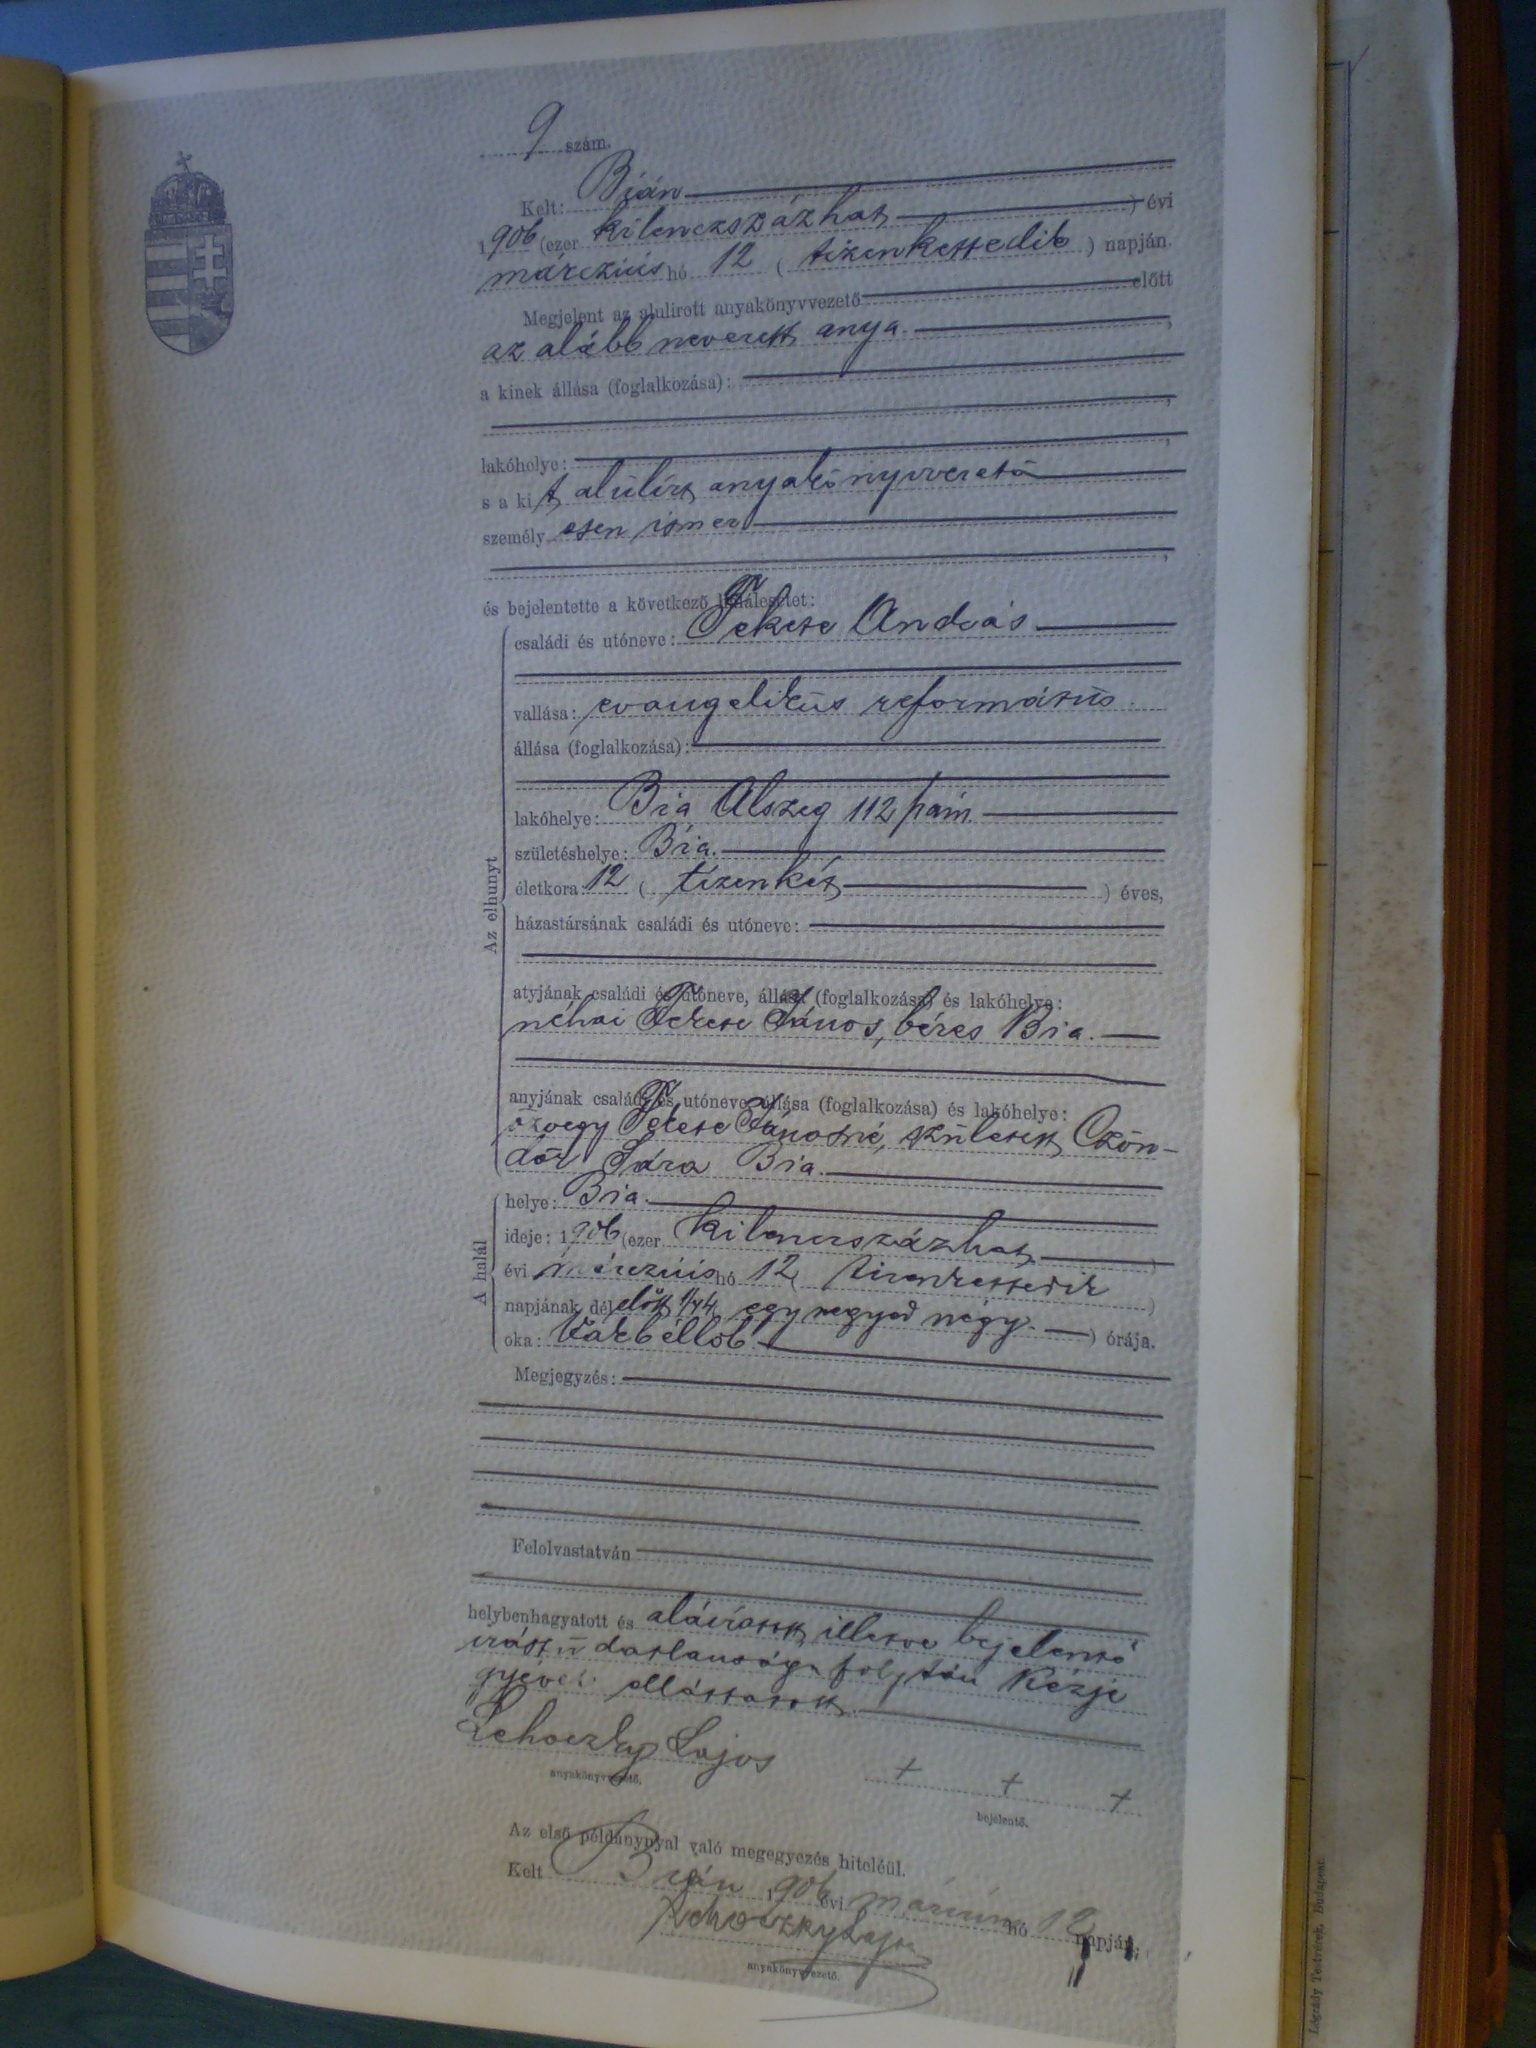 9 szám.
Kelt: Bián
1906 (ezer kilenczszázhat ) évi
márczius hó 12 ( tizenkettedik ) napján.
Megjelent az alulirott anyakönyvvezető előtt
az alább nevezett anya ,
a kinek állása (foglalkozása):
,
lakóhelye: ,
s a kit alulírt anyakönyvvezető
személy esen ismer
,
és bejelentette a következő halálesetet:
családi és utóneve: Fekete András
vallása: evangelikus református
állása (foglalkozása):
lakóhelye: Bia Alszeg 112 szám
születéshelye: Bia.
életkora: 12 ( tizenkét ) éves,
házastársának családi és utóneve:
atyjának családi és utóneve, állása (foglalkozása) és lakóhelye:
néhai Fekete János, béres Bia.
anyjának családi és utóneve, állása (foglalkozása) és lakóhelye:
özvegy Fekete Jánosné, született Czön-
dör Sára Bia.
Az elhunyt
helye: Bia.
ideje: 1906 (ezer kilenczszázhat )
évi márczius hó 12 ( tizenkettedik )
napjának dél előtt 1/4 4 ( egy negyed négy. ) órája.
oka:
A halál
Megjegyzés:
Felolvastatván
helybenhagyatott és aláíratott, illetve bejelentő
irástudatlansága folytán kézje
gyével elláttatott.
Lehoczky Lajos + + +
anyakönyvvezető. bejelentő.
Az első példánynyal való megegyezés hiteléül.
Kelt Bián 1906 évi márczius hó 12 napján.
Lehoczky Lajos
anyakönyvvezető.
Légrády Testvérek, Budapest.